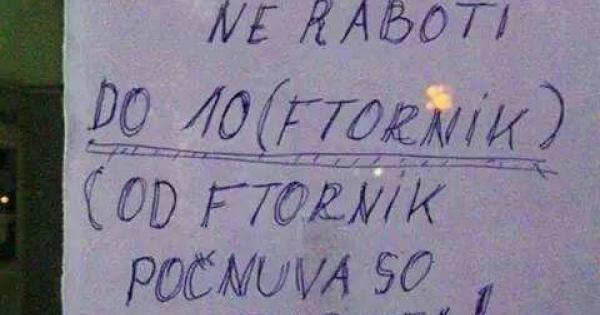 NE RABOTI
DO 10 (FTORNIK)
(OD FTORNIK
POČNUVA SO